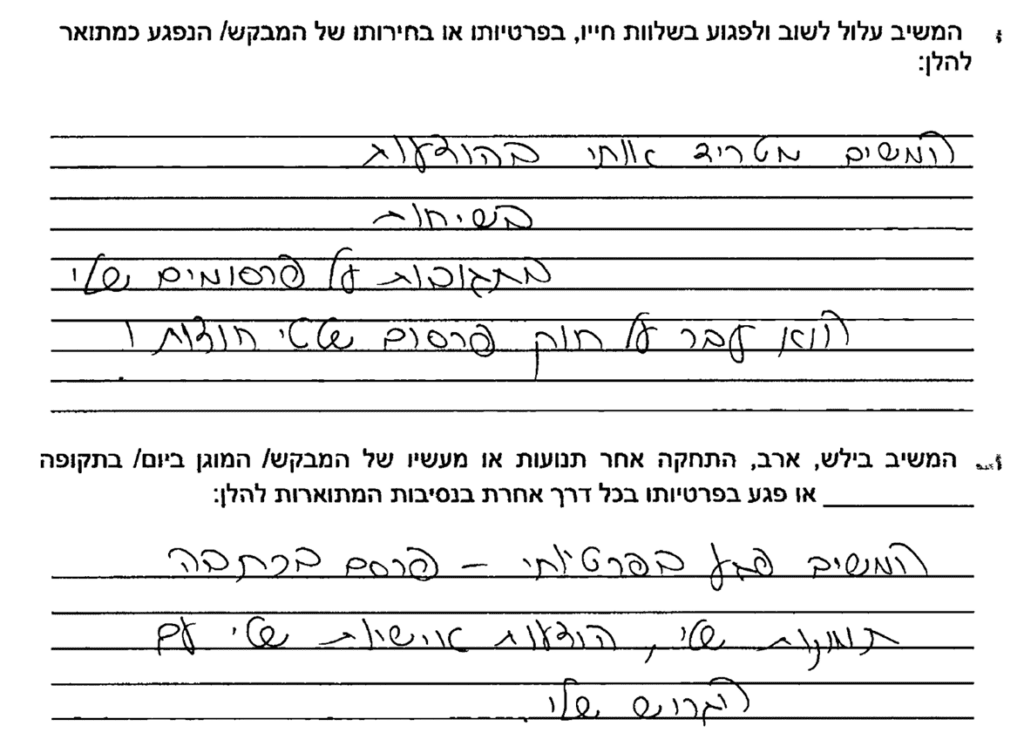 המשיב עלול לשוב ולפגוע בשלוות חייו, בפרטיותו או בחירותו של המבקש/ הנפגע כמתואר
להלן:
המשיב מטריד אותי בהודעות
בשיחות
מתגובות על פרסומים שלי
הוא עבר על חוק פרסום שלי חודות !
המשיב בילש, ארב, התחקה אחר תנועות או מעשיו של המבקש/ המוגן ביום/ בתקופה
או פגע בפרטיותו בכל דרך אחרת בנסיבות המתוארות להלן:
המשיב פגע בפרטיותי - פרסם בכתבה
תמונות שלי, הודעות אישיות שלי עם
הגרוש שלי.